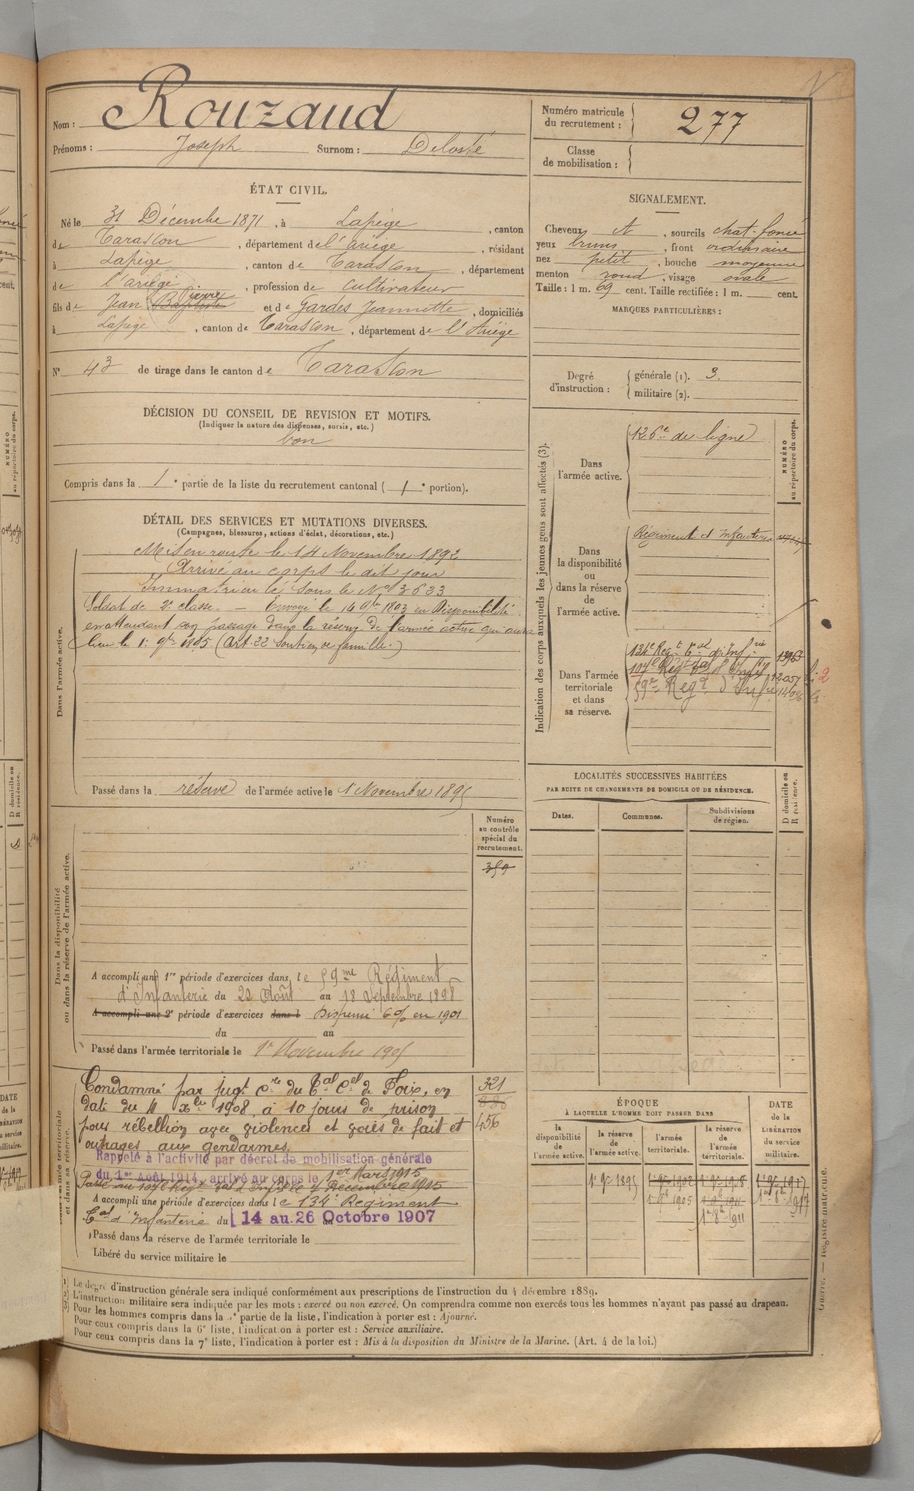 Nom : Rouzaud
Prénoms : Joseph Surnom : Delosté
Numéro matricule du recrutement : 277
Classe de mobilisation :
ÉTAT CIVIL.
Né le 31 Décembre 1871, à Lapège, canton
de Tarascon, département de l'Ariège, résidant
à Lapège, canton de Tarascon, département
de l'ariège, profession de cultivateur
fils de Jean Baptiste Pierre et de Gardes Jeannette, domiciliés
à Lapège, canton de Tarascon, département de l'Ariège
N° 43 de tirage dans le canton de Tarascon
SIGNALEMENT.
Cheveux et, sourcils chat. foncé
yeux bruns, front ordinaire
nez petit, bouche moyenne
menton rond, visage ovale
Taille : 1 m. 69 cent. Taille rectifiée : 1 m. cent.
MARQUES PARTICULIÈRES :
Degré d'instruction : générale (1). 3.
militaire (2).
DÉCISION DU CONSEIL DE REVISION ET MOTIFS.
(Indiquer la nature des dispenses, sursis, etc.)
bon
Compris dans la 1e partie de la liste du recrutement cantonal (1e portion).
DÉTAIL DES SERVICES ET MUTATIONS DIVERSES.
(Campagnes, blessures, actions d'éclat, décorations, etc.)
Dans l'armée active.
Mis en route le 14 Novembre 1892
Arrivé au corps le dit jour
Immatriculé sous le N° 3633
Soldat de 2e classe. — Envoyé le 16 9bre 1893 en Disponibilité
en attendant son passage dans la réserve de l'armée active qui aura
lieu le 1er 9bre 1895 (Art. 22 Soutien de famille.)
Passé dans la réserve de l'armée active le 1 Novembre 1895
Indication des corps auxquels les jeunes gens sont affectés (3).
NUMÉRO au répertoire du corps.
Dans l'armée active.
126e de ligne
Dans la disponibilité ou dans la réserve de l'armée active.
Régiment d'infanterie
Dans l'armée territoriale et dans sa réserve.
134e Regt tal d'Inf.rie
107e Regt tal d'Inf.
59e Regt d'Inf.
LOCALITÉS SUCCESSIVES HABITÉES
PAR SUITE DE CHANGEMENTS DE DOMICILE OU DE RÉSIDENCE.
Dates. Communes. Subdivisions de région. D domicile ou R résidence.
Dans la disponibilité ou dans la réserve de l'armée active.
Numéro au contrôle spécial du recrutement.
359
A accompli une 1re période d'exercices dans le 59me Régiment
d'Infanterie du 22 Août au 18 Septembre 1898
A accompli une 2e période d'exercices dans l Dispensé 6% en 1901
du au
Passé dans l'armée territoriale le 1er Novembre 1905
Condamné par jugt cre du Tal Cel de Foix, en
date du 11 Xbre 1908, à 10 jours de prison
pour rébellion avec violences et voies de fait et
outrages aux gendarmes.
321
456
Rappelé à l'activité par décret de mobilisation générale
du 1er Août 1914, arrivé au corps le 1er Mars 1915
Passé au 107e Regt tal d'Inf. le 4 Décembre 1915
A accompli une période d'exercices dans le 134e Régiment
Tal d'Infanterie du 14 au 26 Octobre 1907
Passé dans la réserve de l'armée territoriale le
Libéré du service militaire le
ÉPOQUE
À LAQUELLE L'HOMME DOIT PASSER DANS
la disponibilité de l'armée active.
la réserve de l'armée active.
l'armée territoriale.
la réserve de l'armée territoriale.
DATE de la LIBÉRATION du service militaire.
1er 9bre 1895
1er 9bre 1905
1er 8bre 1911
(1) Le degré d'instruction générale sera indiqué conformément aux prescriptions de l'instruction du 4 décembre 1889.
(2) L'instruction militaire sera indiquée par les mots : exercé ou non exercé. On comprendra comme non exercés tous les hommes n'ayant pas passé au drapeau.
(3) Pour les hommes compris dans la partie de la liste, l'indication à porter est : Ajourné.
Pour ceux compris dans la 6e liste, l'indication à porter est : Service auxiliaire.
Pour ceux compris dans la 7e liste, l'indication à porter est : Mis à la disposition du Ministre de la Marine. (Art. 4 de la loi.)